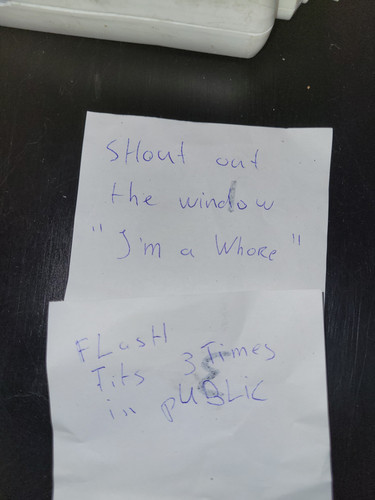 SHout out
the window
"I'm a Whore"
FLasH
Tits 3 Times
in pUBLiC